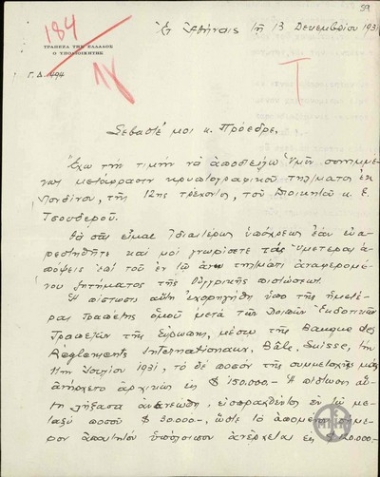 59
184
ΤΡΑΠΕΖΑ ΤΗΣ ΕΛΛΑΔΟΣ
Ο ΥΠΟΔΙΟΙΚΗΤΗΣ
Γ.Δ. 494
Ἐν Ἀθήναις τῇ 13 Δεκεμβρίου 1931
Τ
Σεβαστέ μοι κ. Πρόεδρε,
Ἔχω τὴν τιμὴν νὰ ἀποστείλω Ὑμῖν συνημμέ-
νως μετάφρασιν κρυπτογραφικοῦ τηλ/ματος ἐκ
Λονδίνου, τῆς 12ης τρέχοντος, τοῦ Διοικητοῦ κ. Ε.
Τσουδεροῦ.
Θὰ σᾶς εἶμαι ἰδιαιτέρως ὑπόχρεως ἐὰν εὐα-
ρεστηθῆτε καὶ μοὶ γνωρίσετε τὰς ὑμετέρας
ἀπόψεις ἐπὶ τοῦ ἐν τῷ ἄνω τηλ/ματι ἀναφερομέ-
νου ζητήματος τῆς Οὑγγρικῆς πιστώσεως.
Ἡ πίστωσις αὕτη ἐχορηγήθη ὑπὸ τῆς ἡμετέ-
ρας Τραπέζης ὁμοῦ μετὰ τῶν λοιπῶν Ἐκδοτικῶν
Τραπεζῶν τῆς Εὐρώπης, μέσῳ τῆς Banque des
Réglements Internationaux, Bâle, Suisse, τὴν
11ην Ἰουνίου 1931, τὸ δὲ ποσὸν τῆς συμμετοχῆς μας
ἀνήρχετο ἀρχικῶς εἰς $ 150.000 - Ἡ πίστωσις αὕ-
τη λήξασα ἀνενεώθη, εἰσπραχθέντος ἐν τῷ με-
ταξὺ ποσοῦ $ 30.000 -, ὥστε τὸ ἀπομένον σήμε-
ρον ἀπαιτητὸν ὑπόλοιπον ἀνέρχεται εἰς